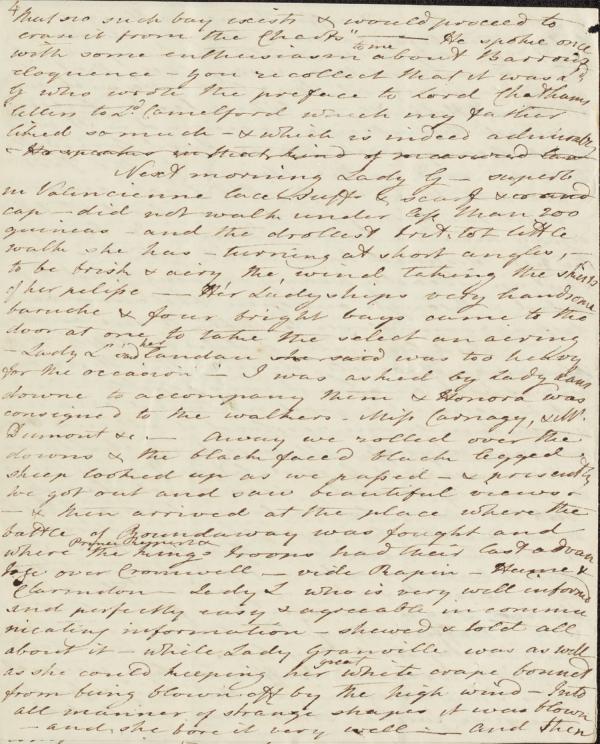 4
that no such bay exists & would proceed to
erase it from the Charts" — He spoke once
to me
with some enthusiasm about Barrow's
eloquence – you recollect that it was Ld
G who wrote the preface to Lord Chathams
letters to Ld Camelford which my father
liked so much – & which is indeed admirable
& He speaks in that kind of measured
Next morning Lady G – superb
in Valencienne lace ruffs & scarf &
cap – did not walk under less than 200
guineas – and the drollest trit-tot little
walk she has – turning at short angles, –
to be brisk & airy the wind taking the skirts
of her pelisse — Her Ladyships very handsome
barouche & four bright bays came to the
door at one to take the select an airing
– Lady L's old landau she said was too heavy
for the occasion – I was asked by Lady Lans
downe to accompany them & Honora was
consigned to the walkers – Miss Carnagy, & Mr.
Dumont &c. — Away we rolled over the
downs & the black faced black legged
sheep looked up as we passed – & presently
we got out and saw beautiful views
– & then arrived at the place where the
battle of Roundaway was fought and
where the kings troops had their last advan
tage over Cromwell – vide Rapin Hume &
Clarendon – Lady L who is very well informed
and perfectly easy & agreeable in commu
nicating information – shewed & told all
about it – while Lady Granville was as well
great
as she could keeping her white crape bonnet
from being blown off by the high wind – Into
all manner of strange shapes it was blown
– and she bore it very well — and then